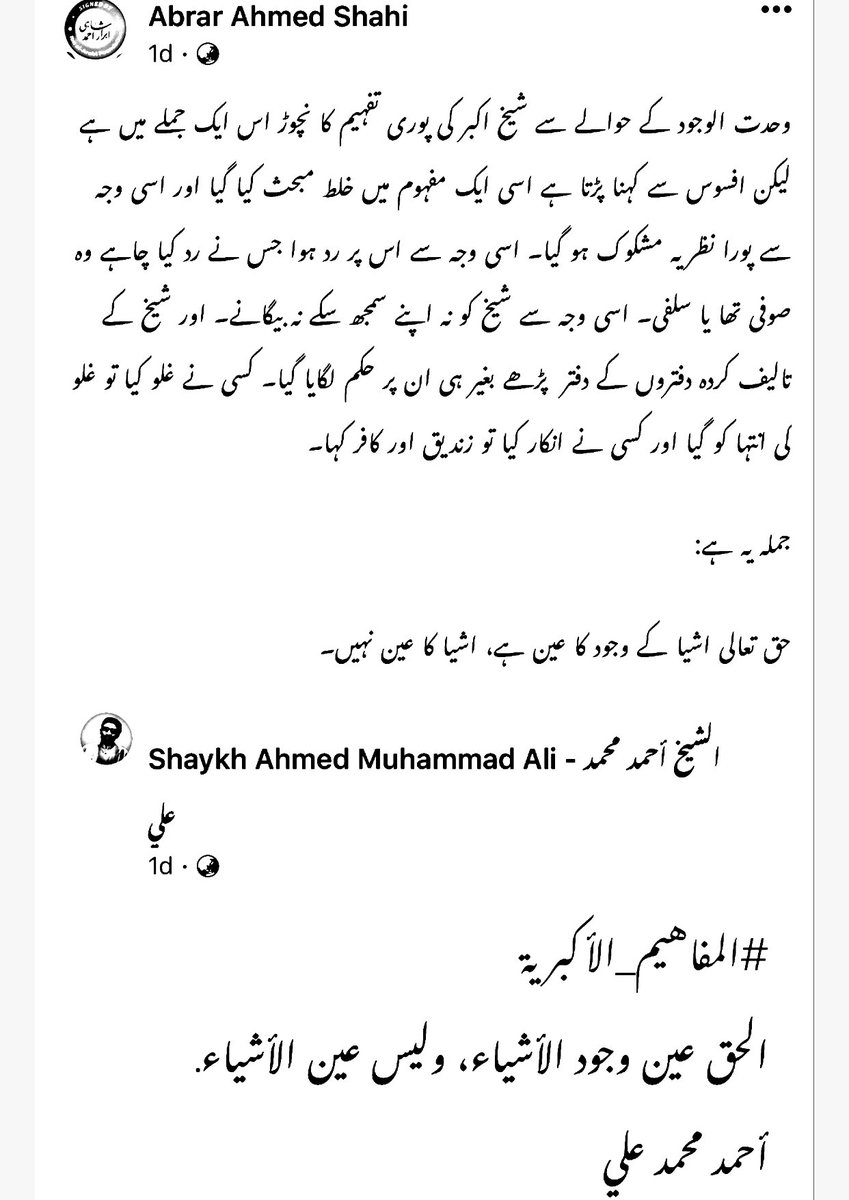 Abrar Ahmed Shahi
1d
وحدت الوجود کے حوالے سے شیخ اکبر کی پوری تفہیم کا نچوڑ اس ایک جملے میں ہے
لیکن افسوس سے کہنا پڑتا ہے اسی ایک مفہوم میں خلط مبحث کیا گیا اور اسی وجہ
سے پورا نظریہ مشکوک ہو گیا۔ اسی وجہ سے اس پر رد ہوا جس نے رد کیا چاہے وہ
صوفی تھا یا سلفی۔ اسی وجہ سے شیخ کو نہ اپنے سمجھ سکے نہ بیگانے۔ اور شیخ کے
تالیف کردہ دفتروں کے دفتر پڑھے بغیر ہی ان پر حکم لگایا گیا۔ کسی نے غلو کیا تو غلو
کی انتہا کو گیا اور کسی نے انکار کیا تو زندیق اور کافر کہا۔
جملہ یہ ہے:
حق تعالی اشیا کے وجود کا عین ہے، اشیا کا عین نہیں۔
Shaykh Ahmed Muhammad Ali - الشيخ أحمد محمد
علي
1d
#المفاهيم_الأكبرية
الحق عين وجود الأشياء، وليس عين الأشياء.
أحمد محمد علي